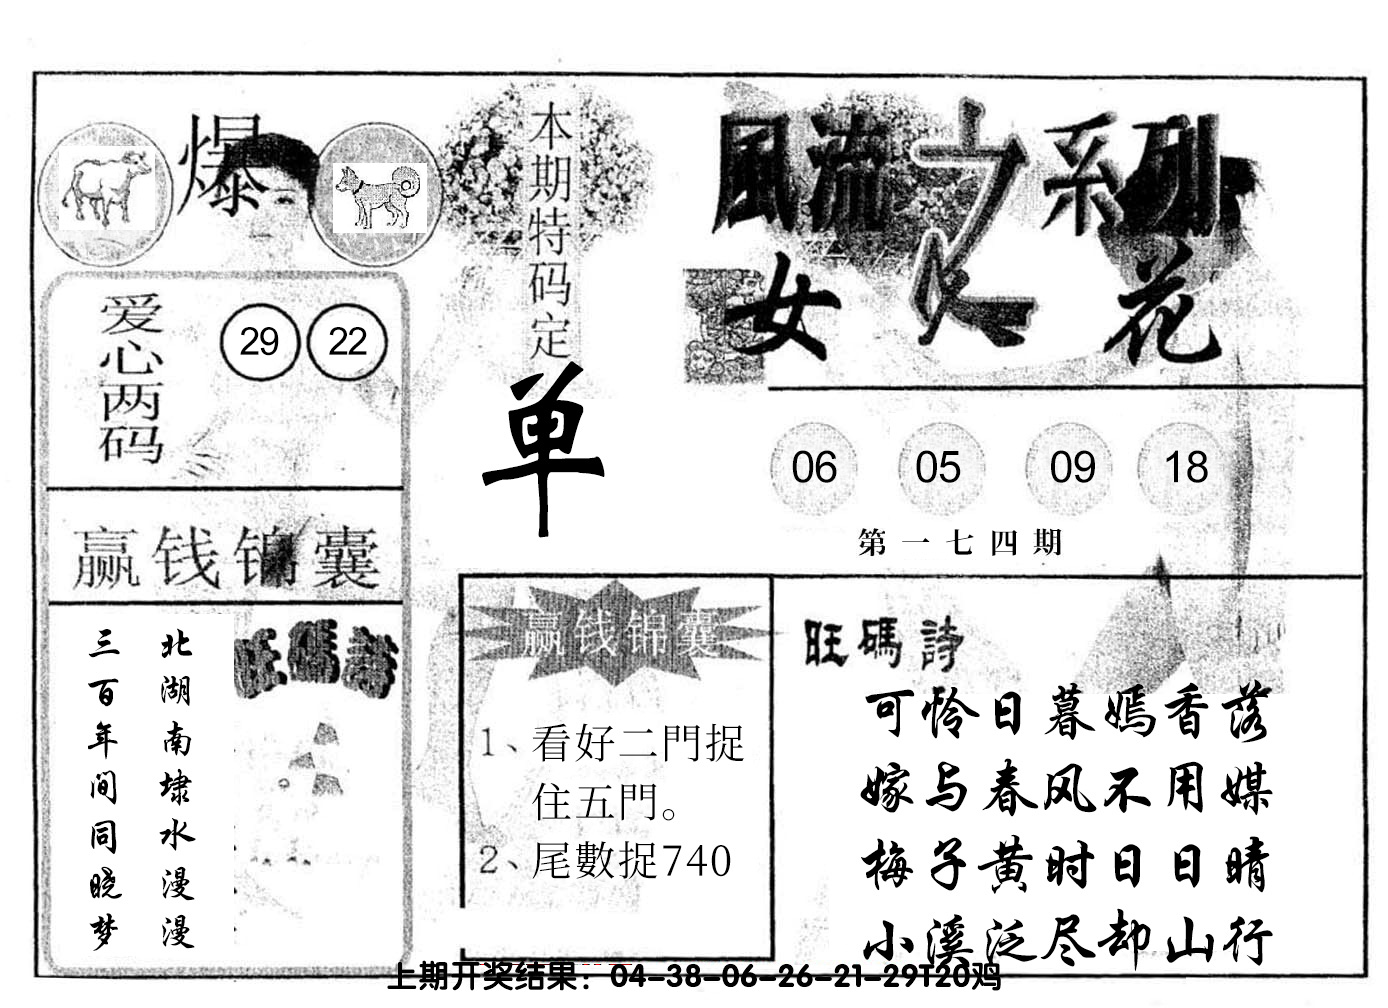 爆
本期特码定
单
風流之系列
女人花
爱心两码
29 22
06 05 09 18
第一七四期
赢钱锦囊
旺碼詩
北湖南埭水漫漫
三百年间同晓梦
赢钱锦囊
1、看好二門捉
住五門。
2、尾數捉740
旺碼詩
可怜日暮嫣香落
嫁与春风不用媒
梅子黄时日日晴
小溪泛尽却山行
上期开奖结果：04-38-06-26-21-29T20鸡